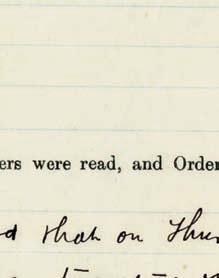 ers were read, and Order
d that on Thur